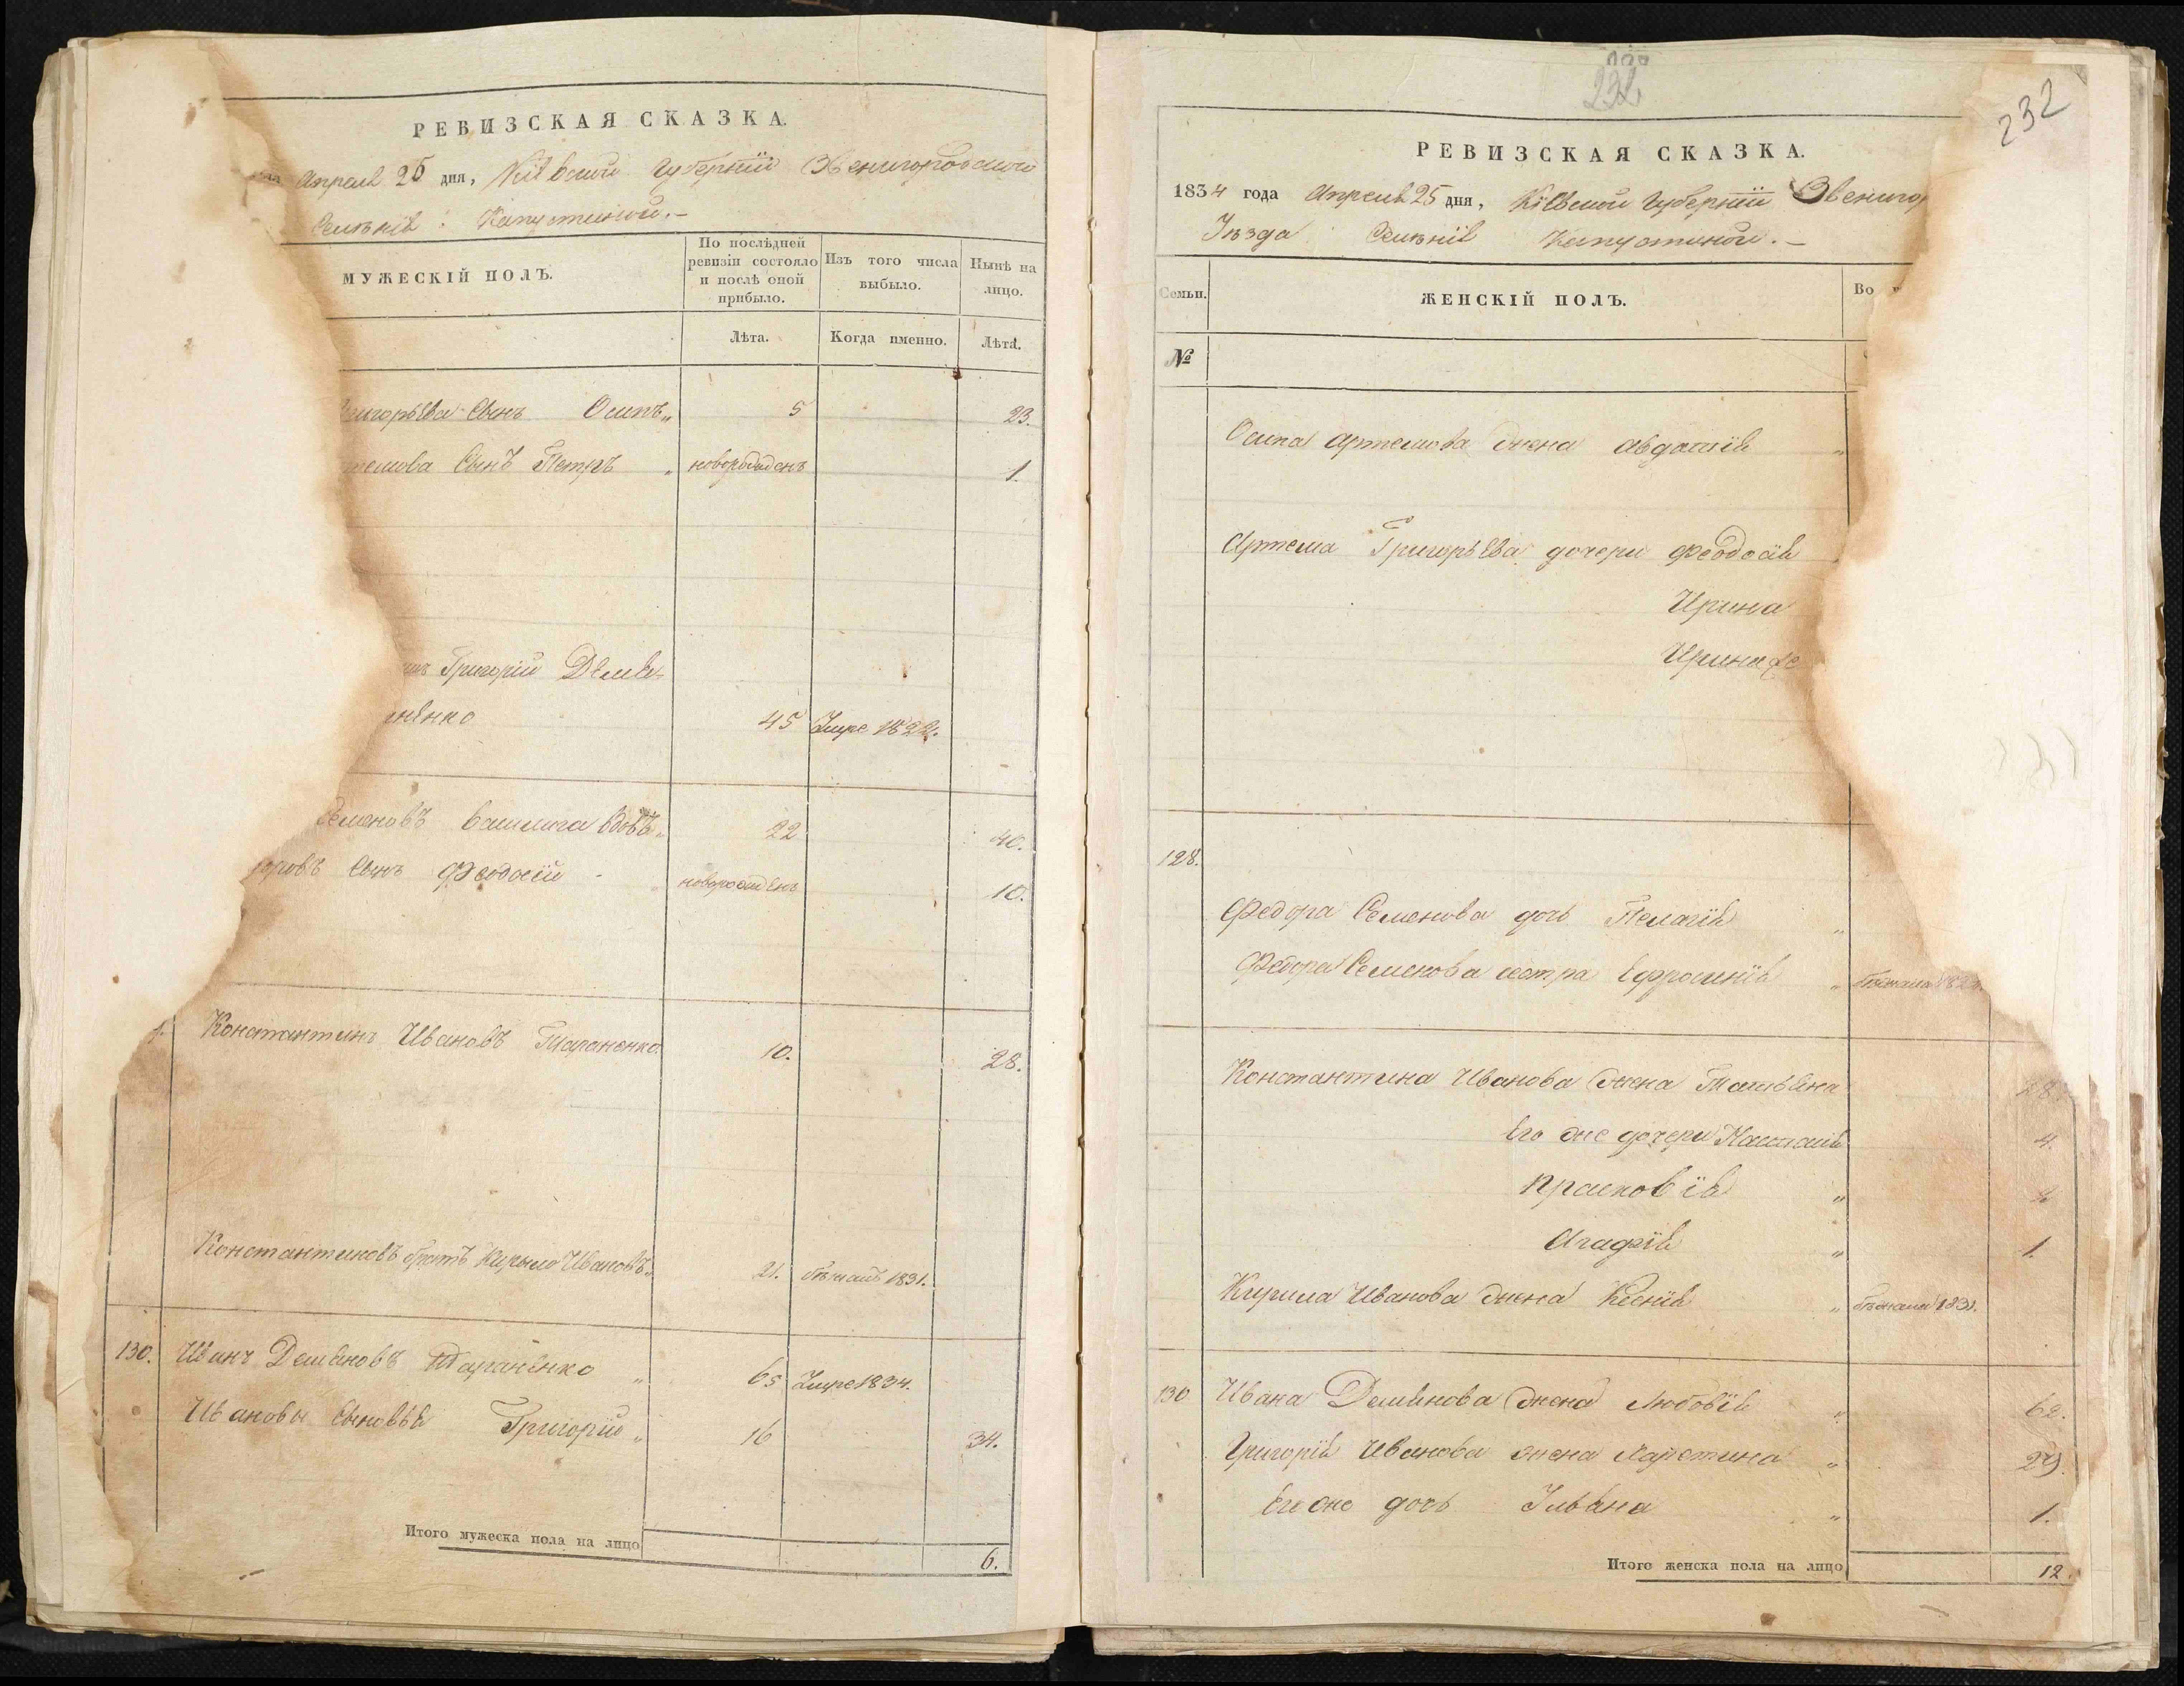 РЕВИЗСКАЯ СКАЗКА.
Апреля 25 дня, Кіевской Губерніи Звенигородской
Селенія Капустиной.
МУЖЕСКІЙ ПОЛЪ.
По послѣдней ревизіи состояло и послѣ оной прибыло.
Изъ того числа выбыло.
Нынѣ на лицо.
Лѣта.
Когда именно.
Лѣта.
Григорьева Сынъ Осипъ „ 5 23.
Сынъ Петръ „ новорожденъ 1.
Григорій
45 Умре 1822.
Семеновъ 22 40.
Сынъ Феодосій новорожденъ 10.
Константинъ Ивановъ Тараненко 10. 28.
Константиновъ братъ Кирыло Ивановъ „ 21. бѣжалъ 1831.
130. Иванъ Демяновъ Тараненко „ 65 Умре 1834.
Ивановы Сыновья Григорій „ 16 34.
Итого мужеска пола на лицо 6.
232
232
РЕВИЗСКАЯ СКАЗКА.
1834 года Апреля 25 дня, Кіевской Губерніи Звениго
Уѣзда Селенія Капустиной.
Семьи.
ЖЕНСКІЙ ПОЛЪ.
Во
№
Осипа Артемова жена Авдотія „
Артема Григорьева дочери Феодосія
Ирина
Ирина
128.
Федора Семенова дочь Пелагія „
Федора Семенова сестра Ефросинія „ бѣжала
Константина Иванова жена Татьяна 28
Его же дочери Настасія 4.
Прасковія „
Агафія „ 1.
Кирила Иванова жена Ксенія „ бѣжала 1831.
130 Ивана Демянова жена Любовія „ 62.
Григорія Иванова жена „ 29.
Его же дочь Ульяна „ 1.
Итого женска пола на лицо 12.